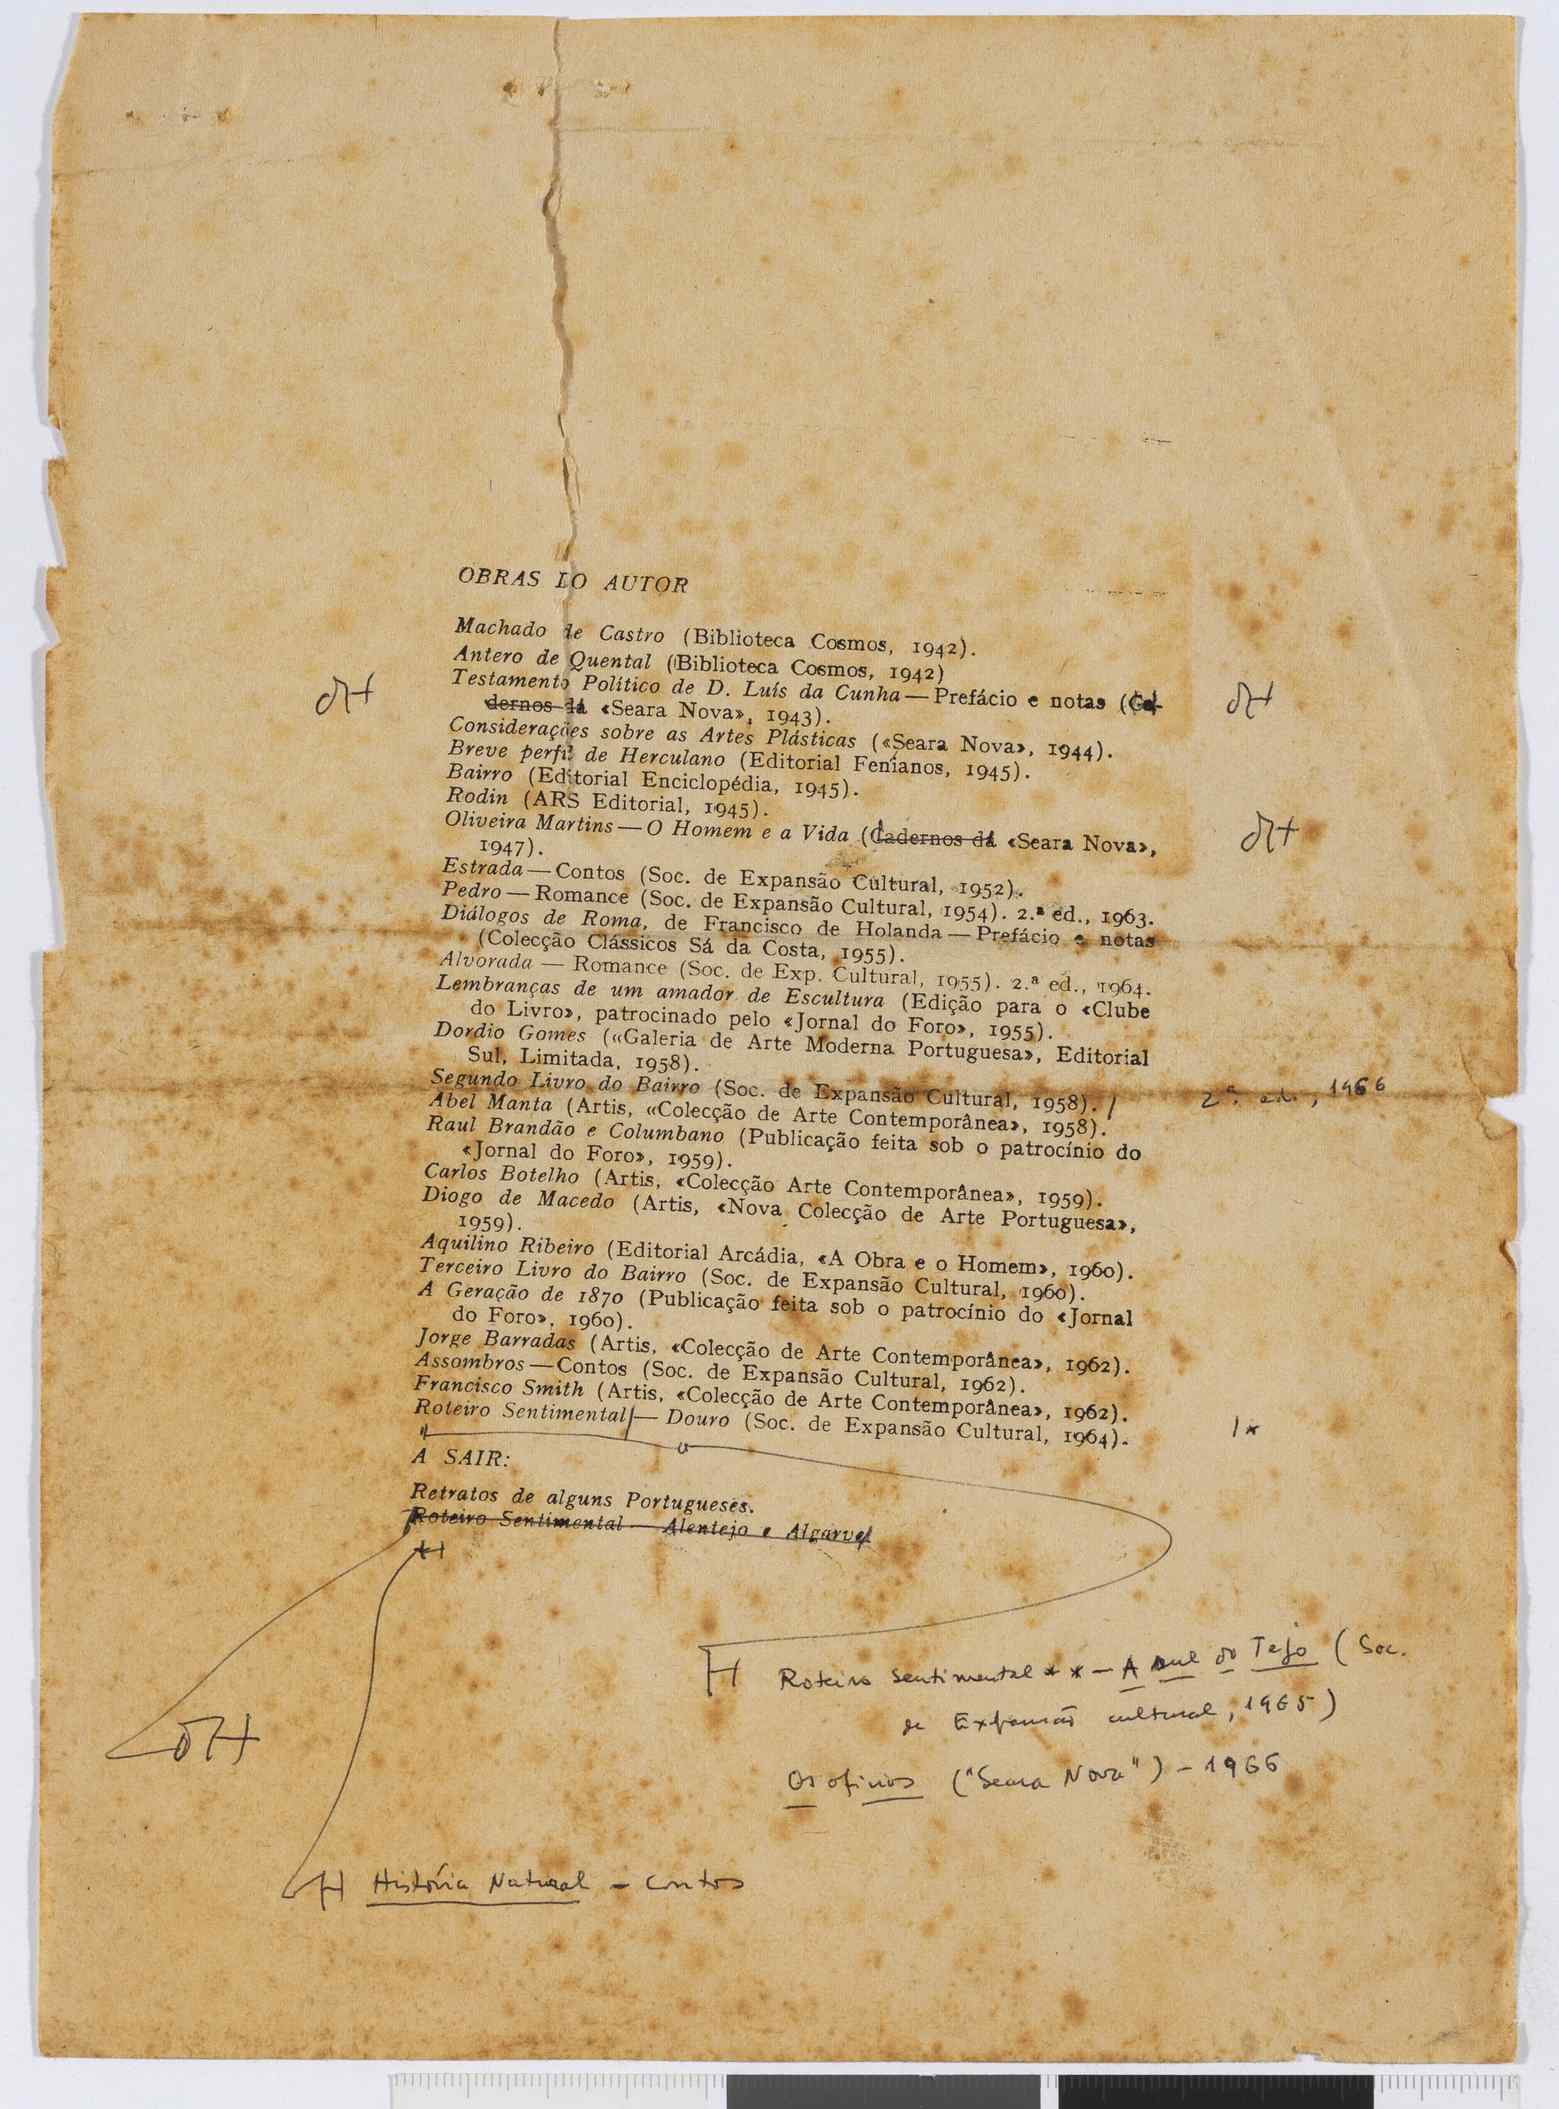 OBRAS DO AUTOR
Machado de Castro (Biblioteca Cosmos, 1942).
Antero de Quental (Biblioteca Cosmos, 1942)
Testamento Político de D. Luís da Cunha — Prefácio e notas (Ca-
dernos da «Seara Nova», 1943).
Considerações sobre as Artes Plásticas («Seara Nova», 1944).
Breve perfil de Herculano (Editorial Fenianos, 1945).
Bairro (Editorial Enciclopédia, 1945).
Rodin (ARS Editorial, 1945).
Oliveira Martins — O Homem e a Vida (Cadernos da «Seara Nova»,
1947).
Estrada — Contos (Soc. de Expansão Cultural, 1952).
Pedro — Romance (Soc. de Expansão Cultural, 1954). 2.ª ed., 1963.
Diálogos de Roma, de Francisco de Holanda — Prefácio e notas
(Colecção Clássicos Sá da Costa, 1955).
Alvorada — Romance (Soc. de Exp. Cultural, 1955). 2.ª ed., 1964.
Lembranças de um amador de Escultura (Edição para o «Clube
do Livro», patrocinado pelo «Jornal do Foro», 1955).
Dordio Gomes («Galeria de Arte Moderna Portuguesa», Editorial
Sul, Limitada, 1958).
Segundo Livro do Bairro (Soc. de Expansão Cultural, 1958). / 2ª. ed., 1966
Abel Manta (Artis, «Colecção de Arte Contemporânea», 1958).
Raul Brandão e Columbano (Publicação feita sob o patrocínio do
«Jornal do Foro», 1959).
Carlos Botelho (Artis, «Colecção Arte Contemporânea», 1959).
Diogo de Macedo (Artis, «Nova Colecção de Arte Portuguesa»,
1959).
Aquilino Ribeiro (Editorial Arcádia, «A Obra e o Homem», 1960).
Terceiro Livro do Bairro (Soc. de Expansão Cultural, 1960).
A Geração de 1870 (Publicação feita sob o patrocínio do «Jornal
do Foro», 1960).
Jorge Barradas (Artis, «Colecção de Arte Contemporânea», 1962).
Assombros — Contos (Soc. de Expansão Cultural, 1962).
Francisco Smith (Artis, «Colecção de Arte Contemporânea», 1962).
Roteiro Sentimental — Douro (Soc. de Expansão Cultural, 1964). /*
A SAIR:
Retratos de alguns Portugueses.
Roteiro Sentimental — Alentejo e Algarve
Roteiro Sentimental * * – A sul do Tejo (Soc.
de Expansão cultural, 1965)
Os ofícios ("Seara Nova") – 1966
História Natural – contos